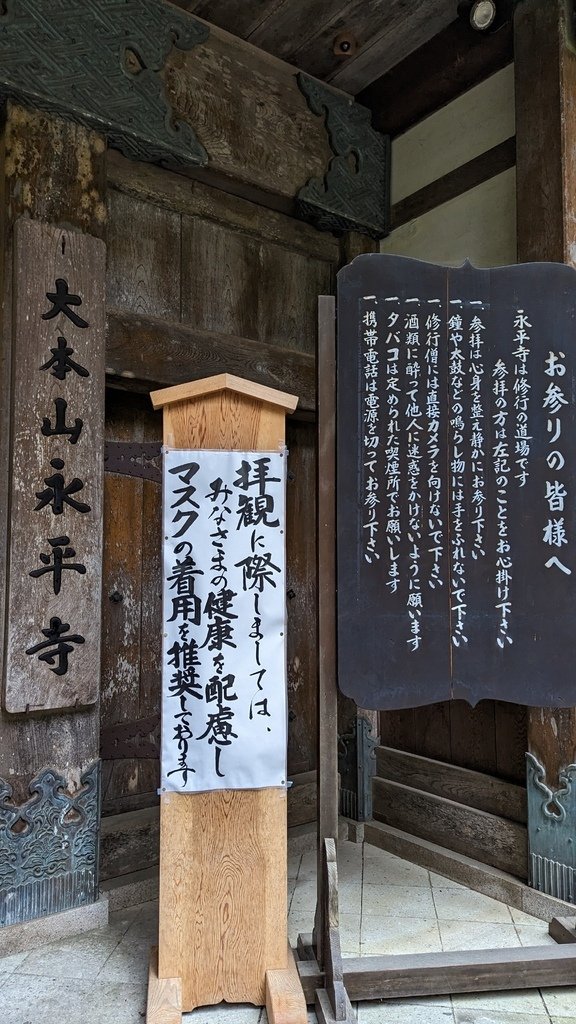 大本山永平寺
拝観に際しましては、
みなさまの健康を配慮し
マスクの着用を推奨しております
お参りの皆様へ
永平寺は修行の道場です
参拝の方は左記のことをお心掛け下さい
一、参拝は心身を整え静かにお参り下さい
一、鐘や太鼓などの鳴らし物には手をふれないで下さい
一、修行僧には直接カメラを向けないで下さい
一、酒類に酔って他人に迷惑をかけないように願います
一、タバコは定められた喫煙所でお願いします
一、携帯電話は電源を切ってお参り下さい